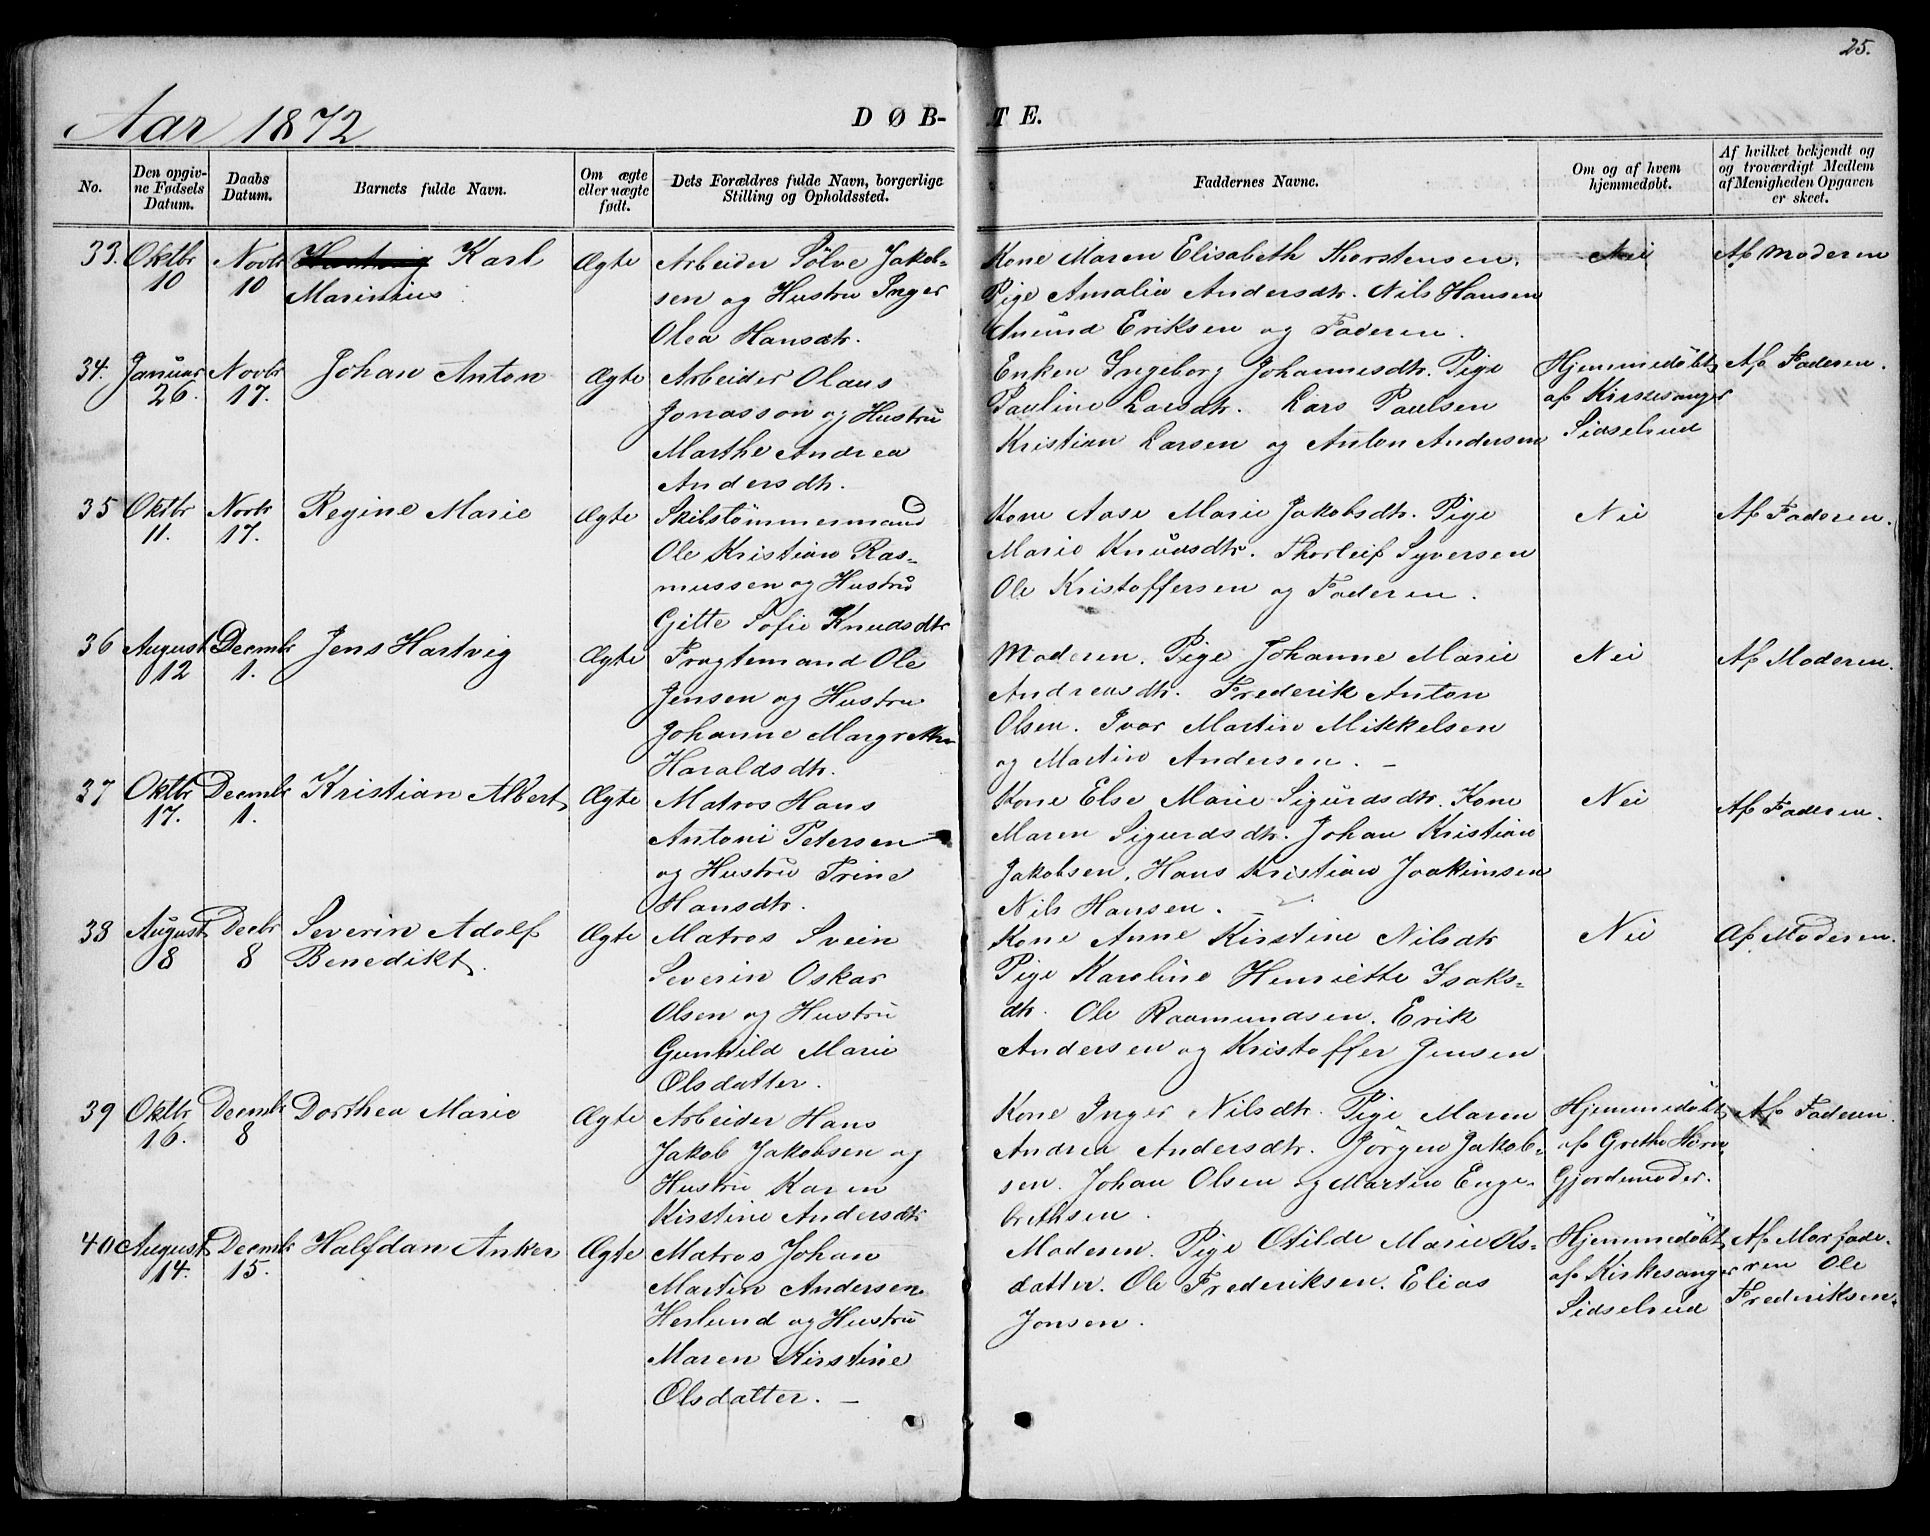 25.
Aar 1872
DØB-TE.
No.
Den opgiv-
ne Fødsels
Datum.
Daabs
Datum.
Barnets fulde Navn.
Om ægte
eller uægte
født.
Dets Forældres fulde Navn, borgerlige
Stilling og Opholdssted.
Faddernes Navne.
Om og af hvem
hjemmedøbt.
Af hvilket bekjendt og
og troværdigt Medlem
af Menigheden Opgaven
er skeet.
33.
Oktbr
10
Novbr
10
Hartvig Karl
Marinius
Ægte
Arbeider Sölve Jakob-
sen og Hustru Inger
Olea Hansdtr.
Kone Maren Elisabeth Thorstensen.
Pige Amalia Andersdtr. Nils Hansen
Anund Eriksen og Faderen.
Nei
Af Moderen
34.
Januar
26.
Novbr
17.
Johan Anton
Ægte
Arbeider Olaus
Jonasson og Hustru
Marthe Andrea
Andersdtr.
Enken Ingeborg Johannesdtr. Pige
Pauline Larsdtr. Lars Paulsen
Kristian Larsen og Anton Andersen
Hjemmedöbt
af Kirkesanger
Sidselrud
Af Faderen.
35
Oktbr
11.
Novbr
17.
Regine Marie
Ægte
Skibstömmermand
Ole Kristian Ras-
mussen og Hustru
Gitte Sofie Knudsdtr
Kone Aase Marie Jakobsdtr. Pige
Marie Knudsdtr. Thorleif Syversen
Ole Kristoffersen og Faderen.
Nei
Af Faderen.
36
August
12
Decmbr
1.
Jens Hartvig
Ægte
Fragtemand Ole
Jensen og Hustru
Johanne Margrethe
Haraldsdtr.
Moderen. Pige Johanne Marie
Andreasdtr. Frederik Anton
Olsen. Ivar Martin Mikkelsen
og Martin Andersen. —
Nei
Af Moderen.
37
Oktbr
17.
Decmbr
1.
Kristian Albert
Ægte
Matros Hans
Antoni Petersen
og Hustru Trine
Hansdtr.
Kone Else Marie Sigurdsdtr. Kone
Maren Sigurdsdtr. Johan Kristian
Jakobsen, Hans Kristian Joakimsen
Nils Hansen. —
Nei
Af Faderen.
38
August
8
Decbr
8
Severin Adolf
Benedikt.
Ægte
Matros Svein
Severin Oskar
Olsen og Hustru
Gunhild Marie
Olsdatter.
Kone Anne Kirstine Nilsdtr
Pige Karoline Henriette Isaks-
dtr. Ole Raamundsen. Erik
Andersen og Kristoffer Jensen
Nei
Af Moderen.
39
Oktbr
16.
Decmbr
8
Dorthea Marie
Ægte
Arbeider Hans
Jakob Jakobsen og
Hustru Karen
Kirstine Andersdtr
Kone Inger Nilsdtr. Pige Maren
Andrea Andersdtr. Jörgen Jakob-
sen. Johan Olsen og Martin Enge-
brethsen.
Hjemmedöbt
af Grethe Horn
Gjordemoder.
Af Faderen.
40
August
14.
Decmbr
15.
Halfdan Anker
Ægte
Matros Johan
Martin Andersen
Herlund og Hustru
Maren Kirstine
Olsdatter. —
Moderen. Pige Otilde Marie Ols-
datter. Ole Frederiksen. Elias
Jonsen.
Hjemmedöbt
af Kirkesanger
Sidselrud
Af Morfade-
ren Ole
Frederiksen.